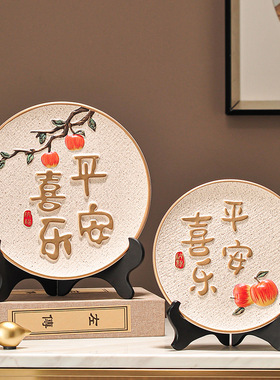 平安
喜乐
平安
喜乐
左傳